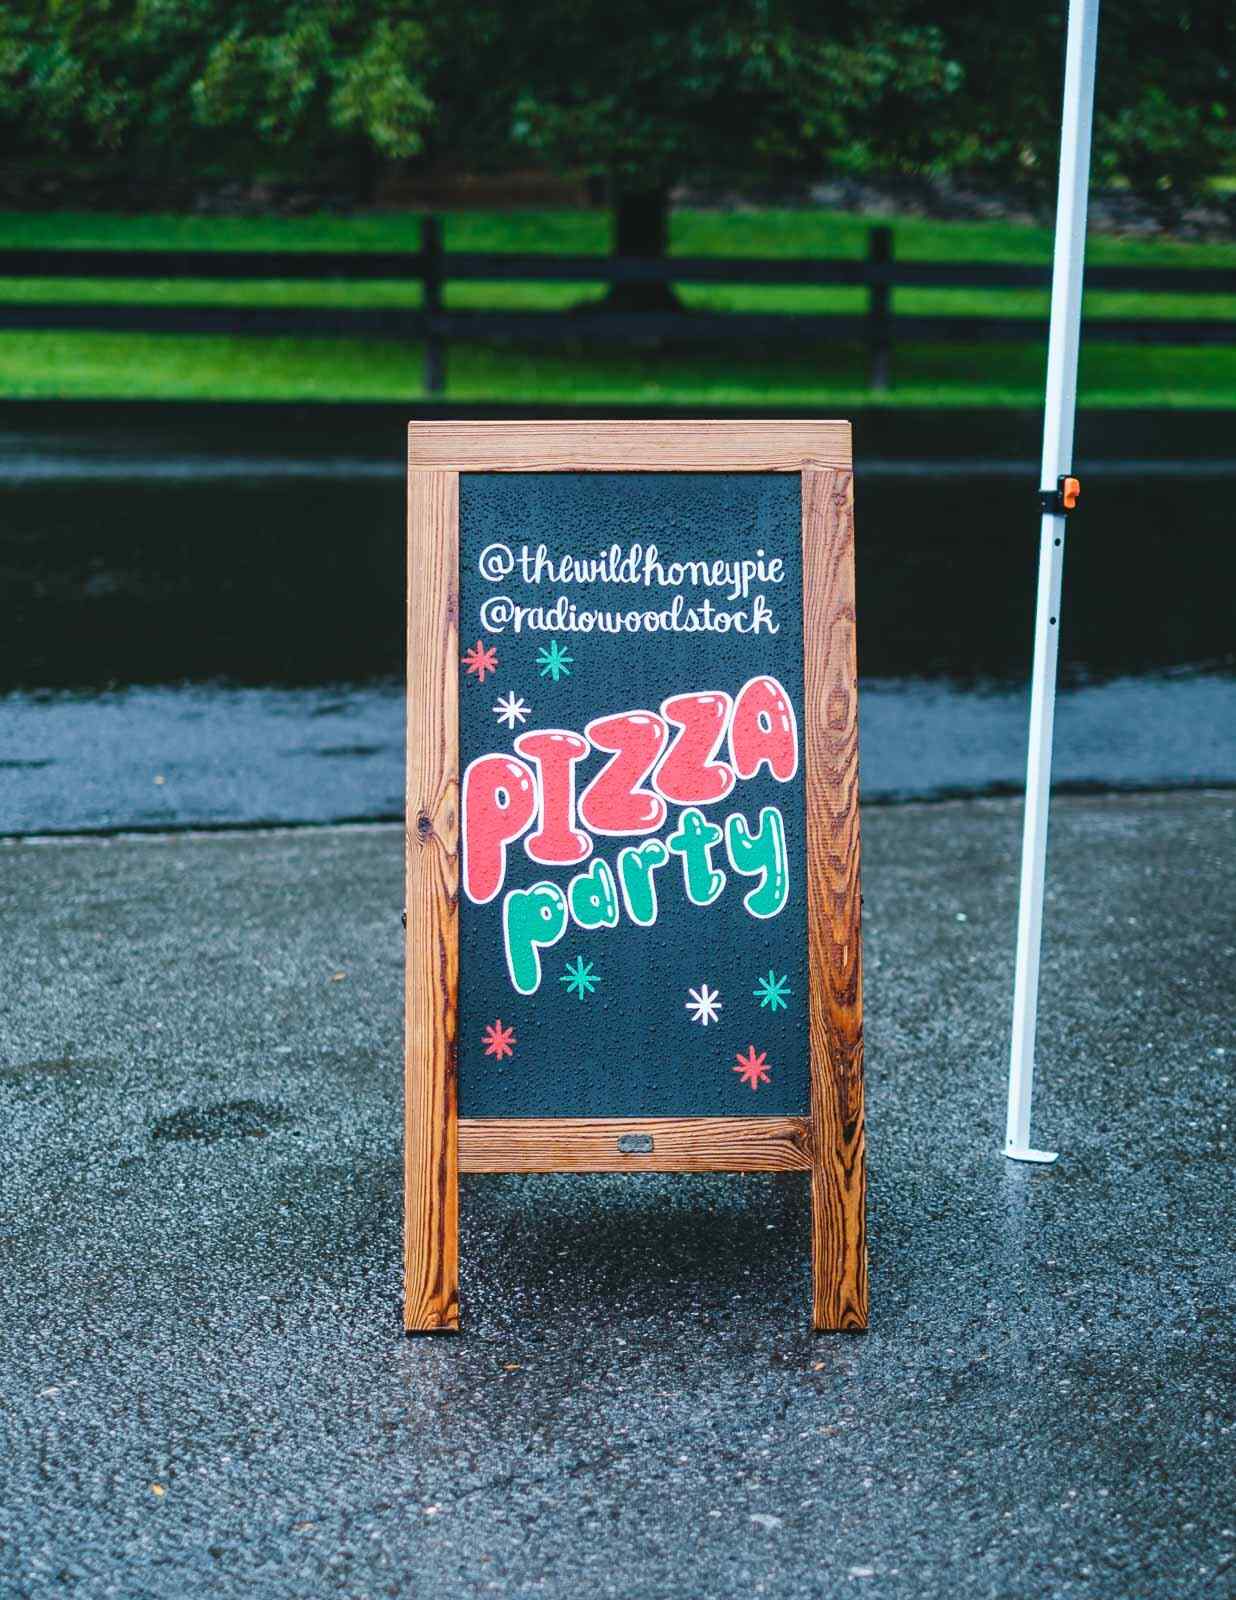 @thewildhoneypie
@radiowoodstock
PIZZA
party